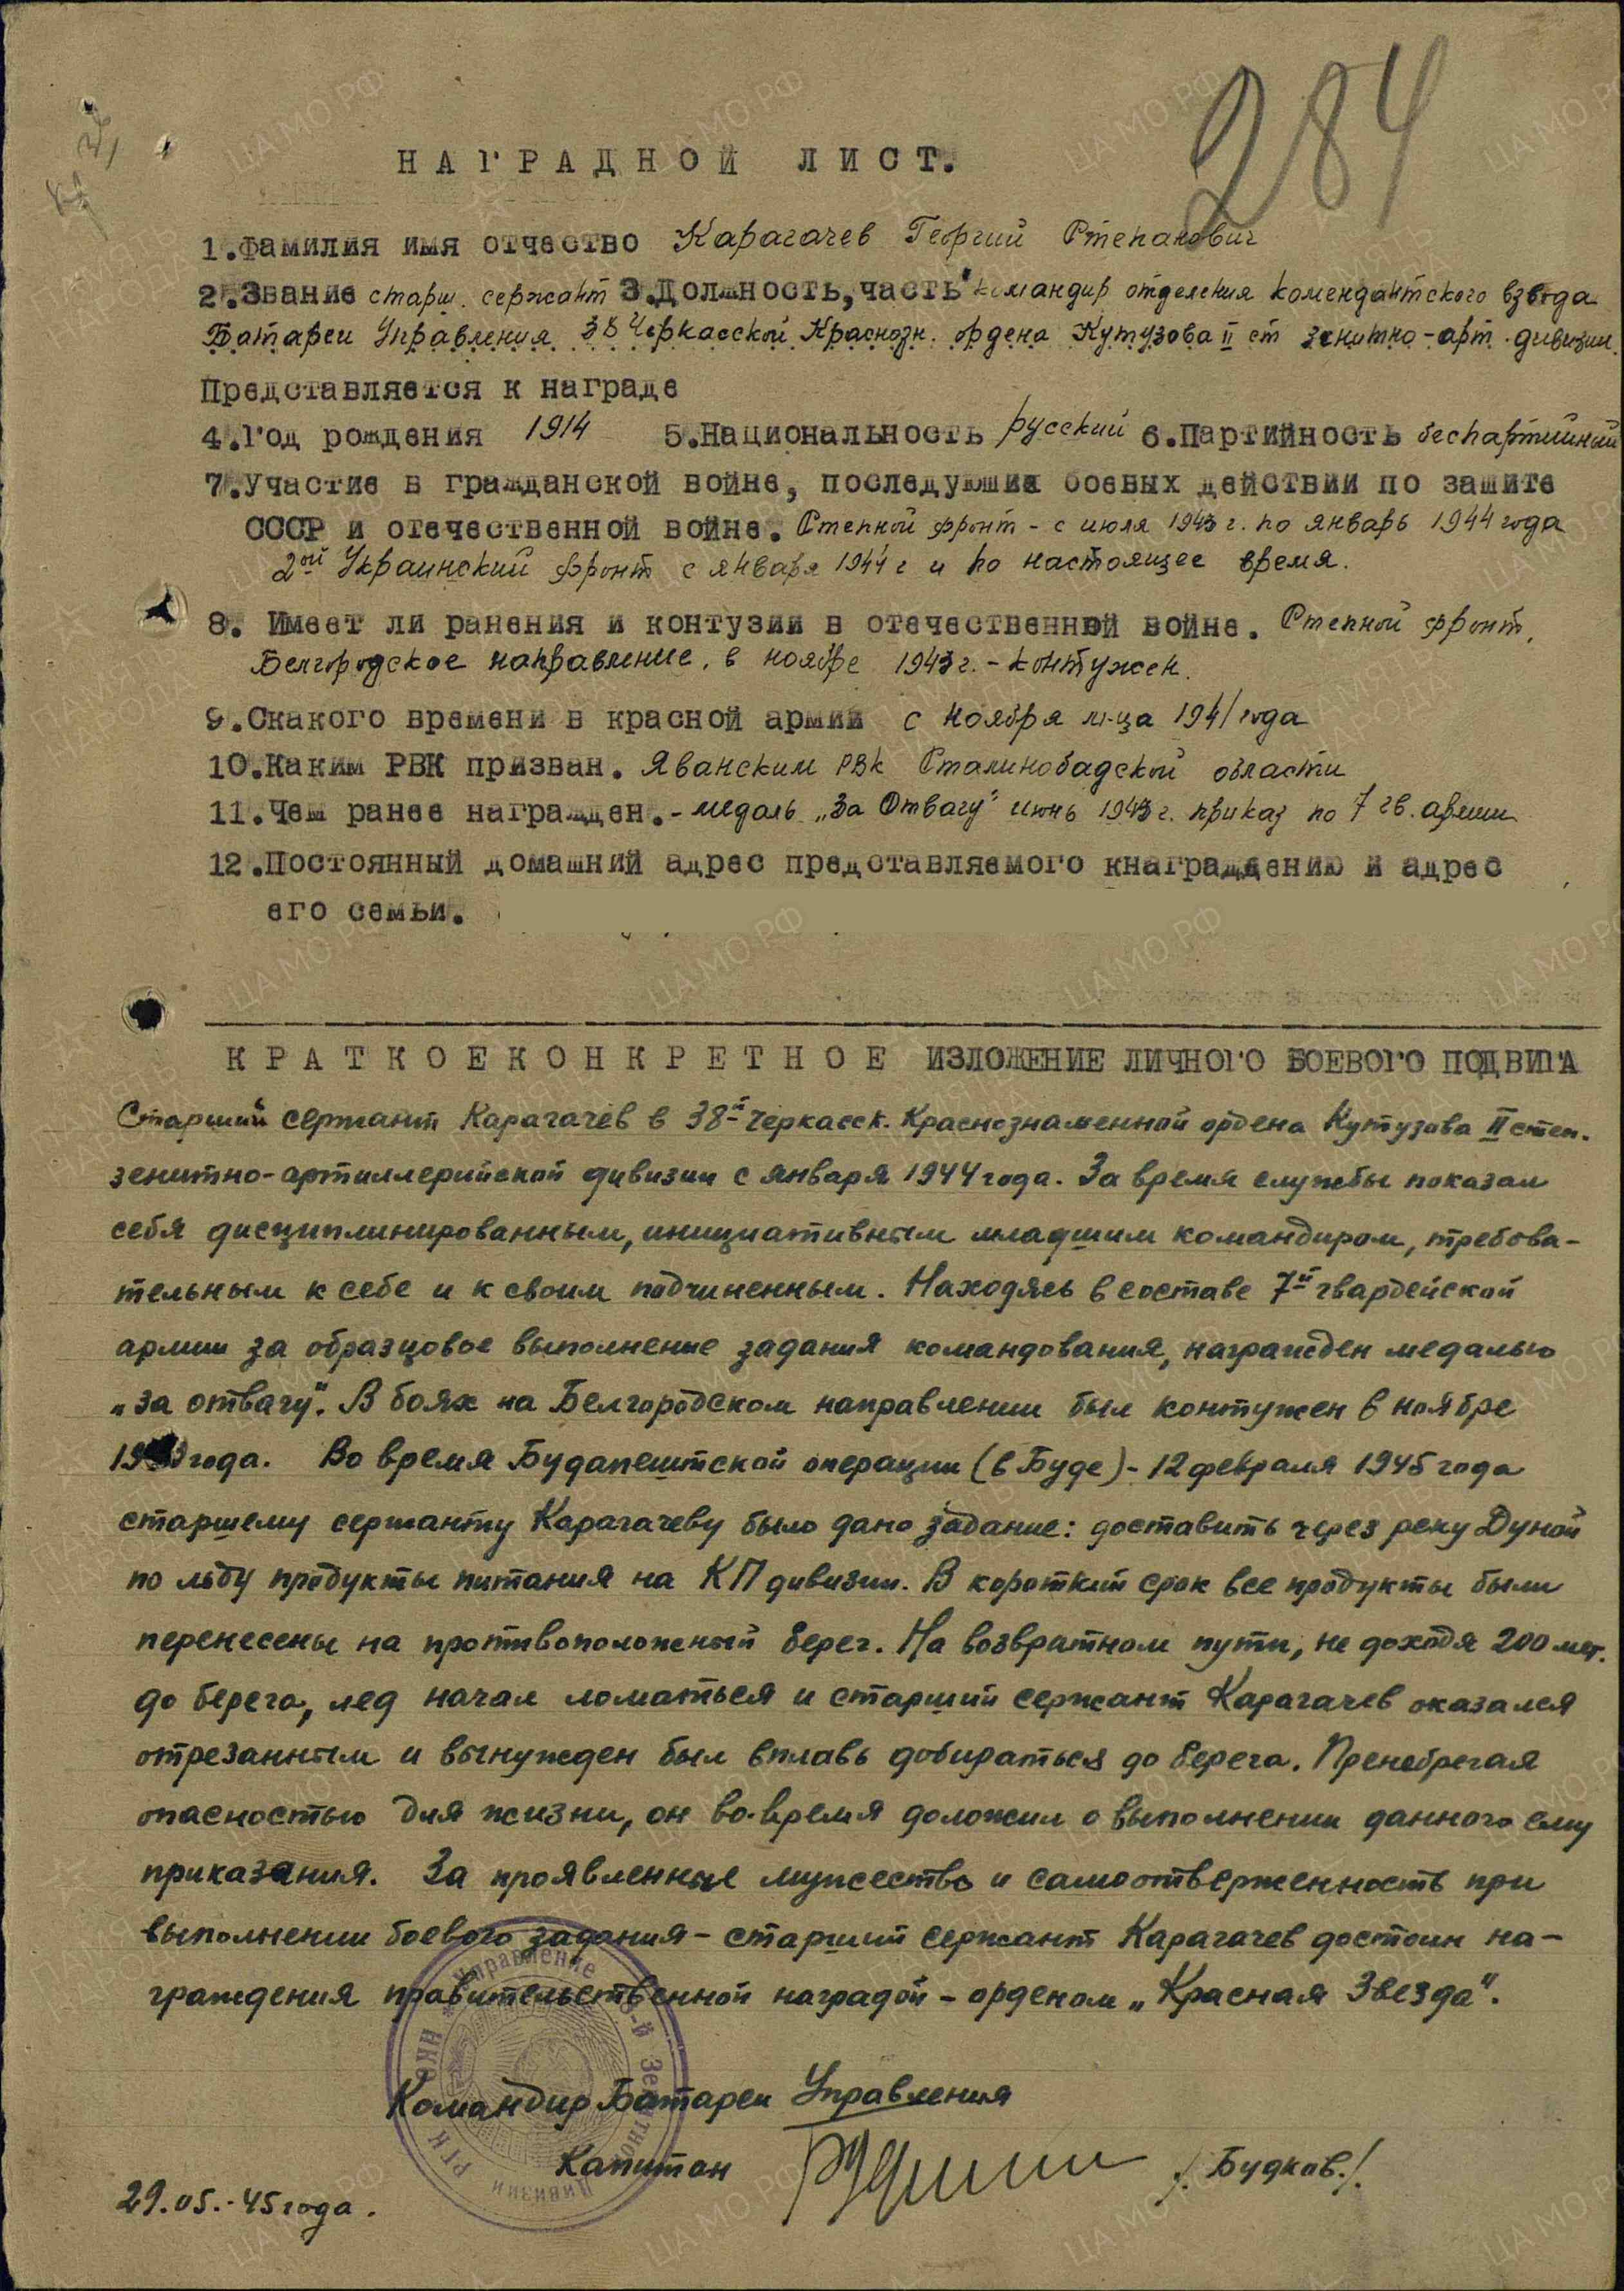 284
НАГРАДНОЙ ЛИСТ.
1.Фамилия имя отчество Карагачев Георгий Степанович
2.Звание старш. сержант 3.Должность,часть командир отделения комендантского взвода
Батареи Управления 38 Черкасской Краснозн. ордена Кутузова II ст зенитно-арт. дивизии.
Представляется к награде
4.Год рождения 1914 5.Национальность русский 6.Партийность беспартийный
7.Участие в гражданской войне, последующих боевых действии по защите
СССР и отечественной войне. Степной фронт - с июля 1943 г. по январь 1944 года
2ой Украинский фронт с января 1944 г и по настоящее время.
8. Имеет ли ранения и контузии в отечественней войне. Степной фронт,
Белгородское направление, в ноябре 1943 г. - контужен.
9.Скакого времени в красной армии с ноября м-ца 1941 года
10.Каким РВК призван. Яванским РВК Сталинобадской области
11.Чем ранее награжден.- медаль „За Отвагу" июнь 1943 г. приказ по 7 гв. армии
12.Постоянный домашний адрес представляемого кнаграждению и адрес
его семьи.
КРАТКОЕ КОНКРЕТНОЕ ИЗЛОЖЕНИЕ ЛИЧНОГО БОЕВОГО ПОДВИГА
Старший сержант Карагачев в 38й Черкасск. Краснознаменной ордена Кутузова II степ.
зенитно-артиллерийской дивизии с января 1944 года. За время службы показал
себя дисциплинированным, инициативным младшим командиром, требова-
тельным к себе и к своим подчиненным. Находясь в составе 7й гвардейской
армии за образцовое выполнение задания командования, награжден медалью
„за отвагу". В боях на Белгородском направлении был контужен в ноябре
1943 года. Во время Будапештской операции (в Буде) - 12 февраля 1945 года
старшему сержанту Карагачеву было дано задание: доставить через реку Дунай
по льду продукты питания на КП дивизии. В короткий срок все продукты были
перенесены на противоположный берег. На возвратном пути, не доходя 200 мет.
до берега, лед начал ломаться и старший сержант Карагачев оказался
отрезанным и вынужден был вплавь добираться до берега. Пренебрегая
опасностью для жизни, он во-время доложил о выполнении данного ему
приказания. За проявленные мужество и самоотверженность при
выполнении боевого задания - старший сержант Карагачев достоин на-
граждения правительственной наградой - орденом „Красная Звезда".
Командир Батареи Управления
Капитан /Будков./
29.05.-45 года.
НКО Управление Зенитной Дивизии РГК